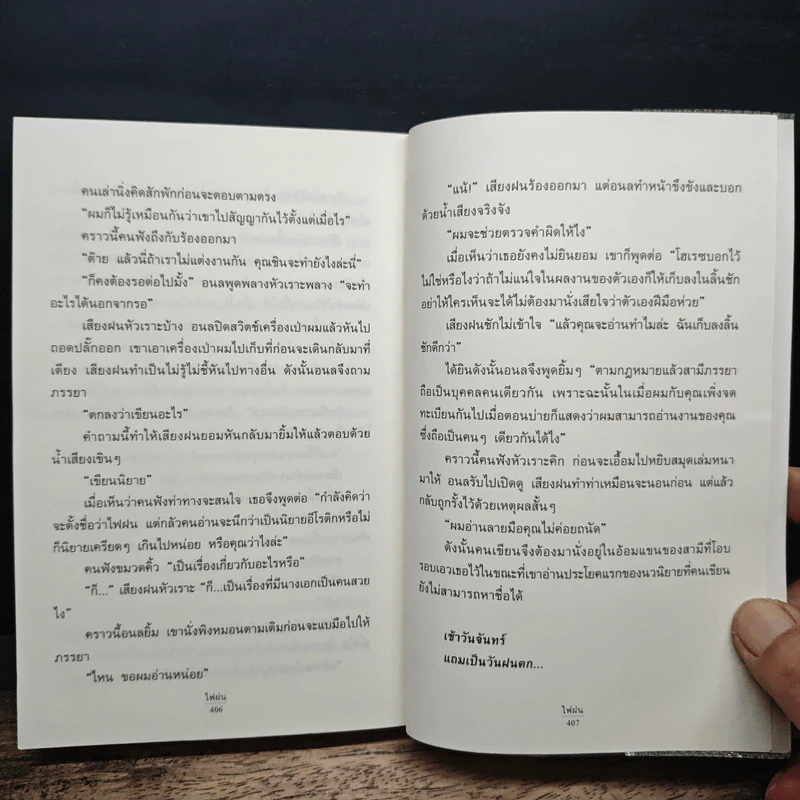 คนเล่านิ่งคิดสักพักก่อนจะตอบตามตรง
“ผมก็ไม่รู้เหมือนกันว่าเขาไปสัญญากันไว้ตั้งแต่เมื่อไร”
คราวนี้คนฟังถึงกับร้องออกมา
“ต๊าย แล้วนี่ถ้าเราไม่แต่งงานกัน คุณชินจะทำยังไงล่ะนี่”
“ก็คงต้องรอต่อไปมั้ง” อนลพูดพลางหัวเราะพลาง “จะทำ
อะไรได้นอกจากรอ”
เสียงฝนหัวเราะบ้าง อนลปิดสวิตช์เครื่องเป่าผมแล้วหันไป
ถอดปลั๊กออก เขาเอาเครื่องเป่าผมไปเก็บที่ก่อนจะเดินกลับมาที่
เตียง เสียงฝนทำเป็นไม่รู้ไม่ชี้หันไปทางอื่น ดังนั้นอนลจึงถาม
ภรรยา
“ตกลงว่าเขียนอะไร”
คำถามนี้ทำให้เสียงฝนยอมหันกลับมายิ้มให้แล้วตอบด้วย
น้ำเสียงเขินๆ
“เขียนนิยาย”
เมื่อเห็นว่าคนฟังท่าทางจะสนใจ เธอจึงพูดต่อ “กำลังคิดว่า
จะตั้งชื่อว่าไฟฝน แต่กลัวคนอ่านจะนึกว่าเป็นนิยายอีโรติกหรือไม่
ก็นิยายเครียดๆ เกินไปหน่อย หรือคุณว่าไงล่ะ”
คนฟังขมวดคิ้ว “เป็นเรื่องเกี่ยวกับอะไรหรือ”
“ก็...” เสียงฝนหัวเราะ “ก็...เป็นเรื่องที่มีนางเอกเป็นคนสวย
ไง”
คราวนี้อนลยิ้ม เขานั่งพิงหมอนตามเดิมก่อนจะแบมือไปให้
ภรรยา
“ไหน ขอผมอ่านหน่อย”
ไฟฝน
406
“แน้!” เสียงฝนร้องออกมา แต่อนลทำหน้าขึงขังและบอก
ด้วยน้ำเสียงจริงจัง
“ผมจะช่วยตรวจคำผิดให้ไง”
เมื่อเห็นว่าเธอยังคงไม่ยินยอม เขาก็พูดต่อ “โฮเรซบอกไว้
ไม่ใช่หรือไงว่าถ้าไม่แน่ใจในผลงานของตัวเองก็ให้เก็บลงในลิ้นชัก
อย่าให้ใครเห็นจะได้ไม่ต้องมานั่งเสียใจว่าตัวเองฝีมือห่วย”
เสียงฝนชักไม่เข้าใจ “แล้วคุณจะอ่านทำไมล่ะ ฉันเก็บลงลิ้น
ชักดีกว่า”
ได้ยินดังนั้นอนลจึงพูดยิ้มๆ “ตามกฎหมายแล้วสามีภรรยา
ถือเป็นบุคคลคนเดียวกัน เพราะฉะนั้นในเมื่อผมกับคุณเพิ่งจด
ทะเบียนกันไปเมื่อตอนบ่ายก็แสดงว่าผมสามารถอ่านงานของคุณ
ซึ่งถือเป็นคนๆ เดียวกันได้ไง”
คราวนี้คนฟังหัวเราะคิก ก่อนจะเอื้อมไปหยิบสมุดเล่มหนา
มาให้ อนลรับไปเปิดดู เสียงฝนทำท่าเหมือนจะนอนก่อน แต่แล้ว
กลับถูกรั้งไว้ด้วยเหตุผลสั้นๆ
“ผมอ่านลายมือคุณไม่ค่อยถนัด”
ดังนั้นคนเขียนจึงต้องมานั่งอยู่ในอ้อมแขนของสามีที่โอบ
รอบเอวเธอไว้ในขณะที่เขาอ่านประโยคแรกของนวนิยายที่คนเขียน
ยังไม่สามารถหาชื่อได้
เช้าวันจันทร์
แถมเป็นวันฝนตก...
ไฟฝน
407